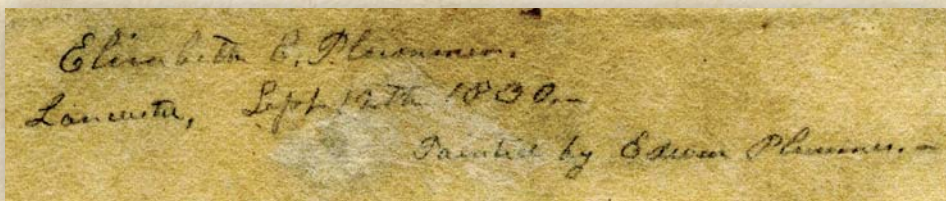 Elizabeth C. Plummer.
Lancaster, Sept. 12th 1830.—
Painted by Edwin Plummer.—